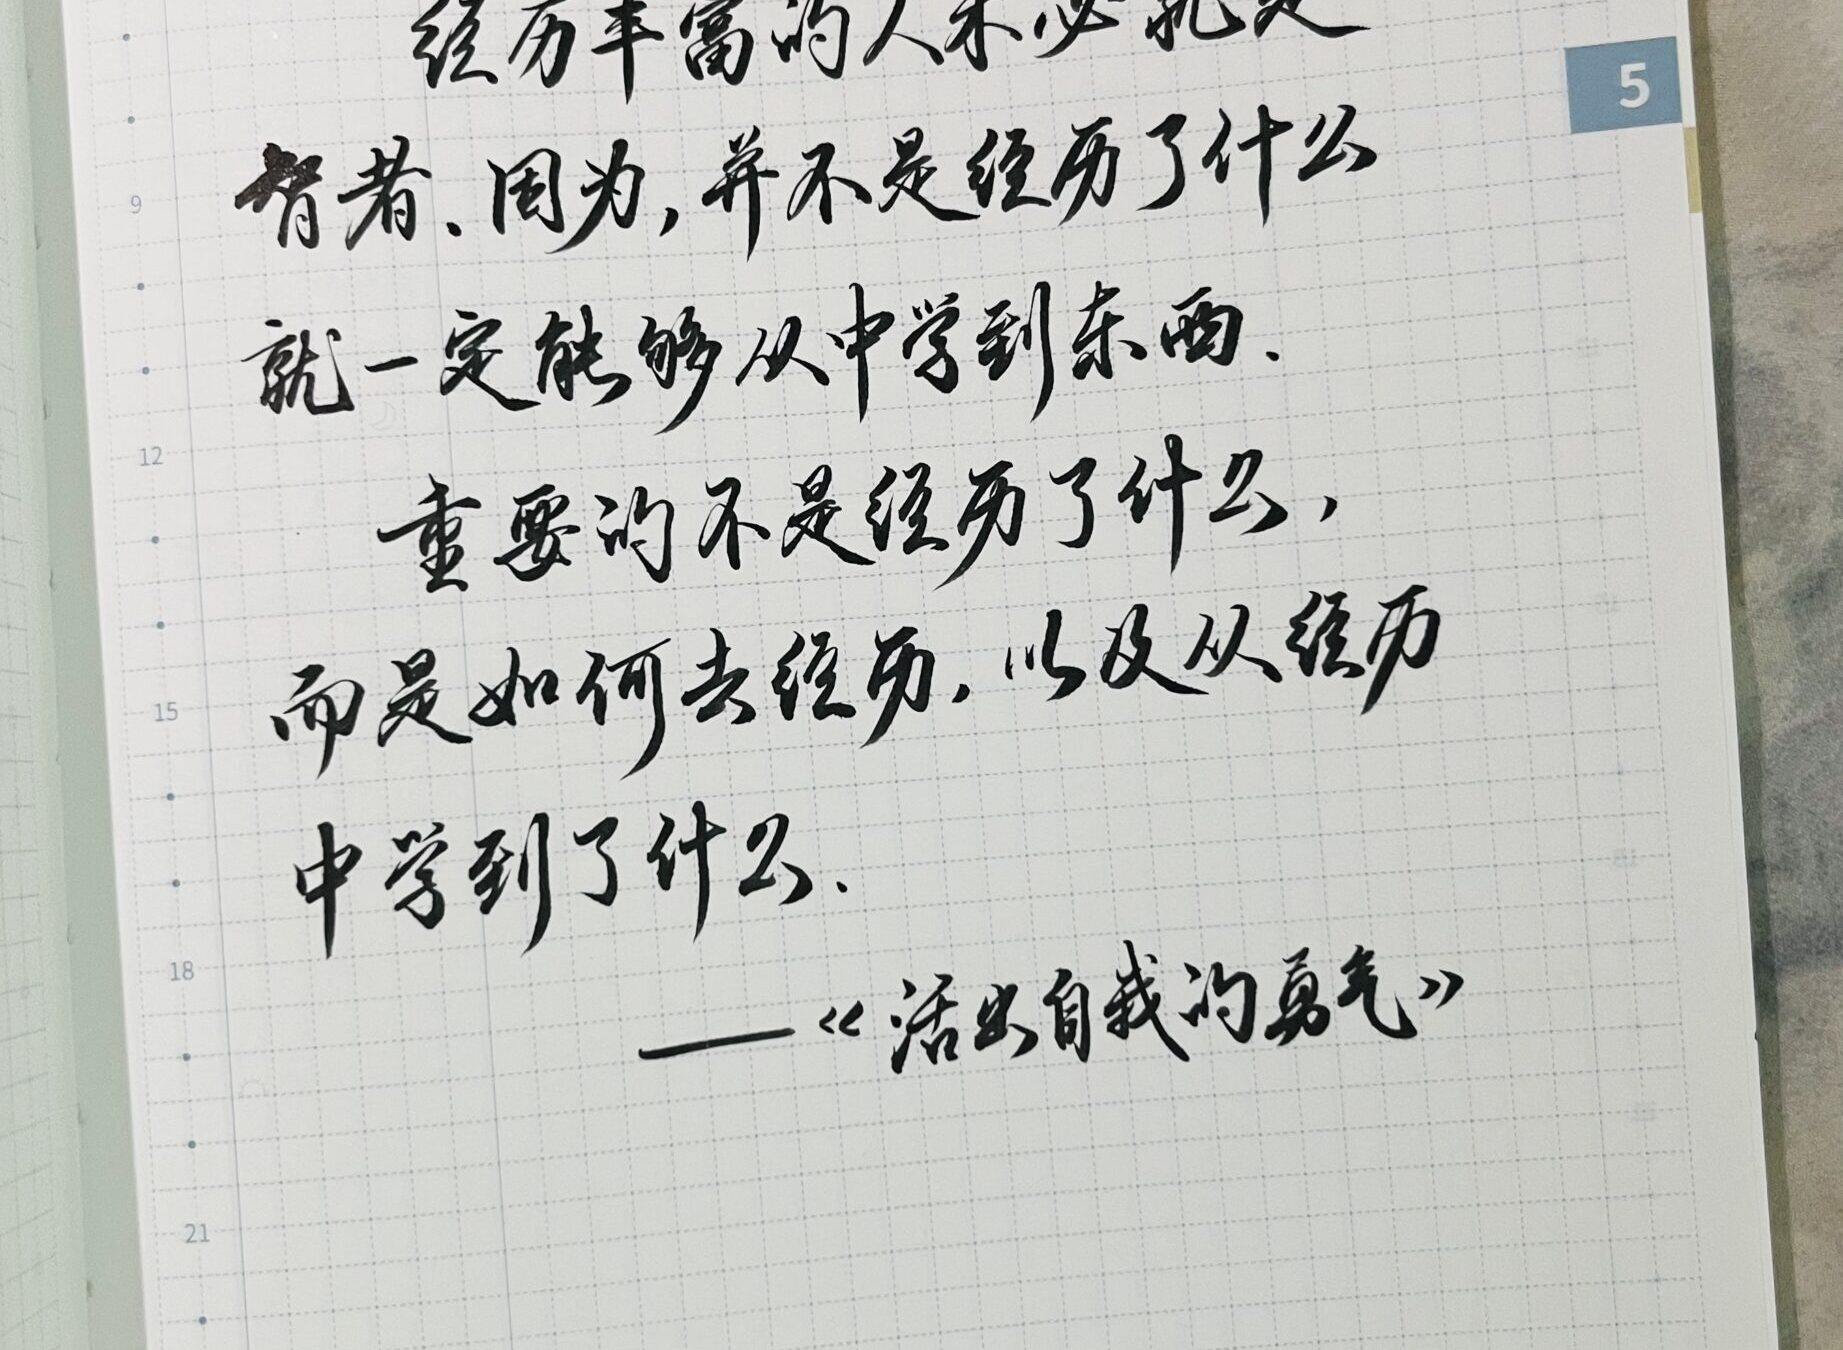 经历丰富的人未必就是
5
智者.因为,并不是经历了什么
9
就一定能够从中学到东西.
12
重要的不是经历了什么,
而是如何去经历.以及从经历
15
中学到了什么.
18
——《活出自我的勇气》
21